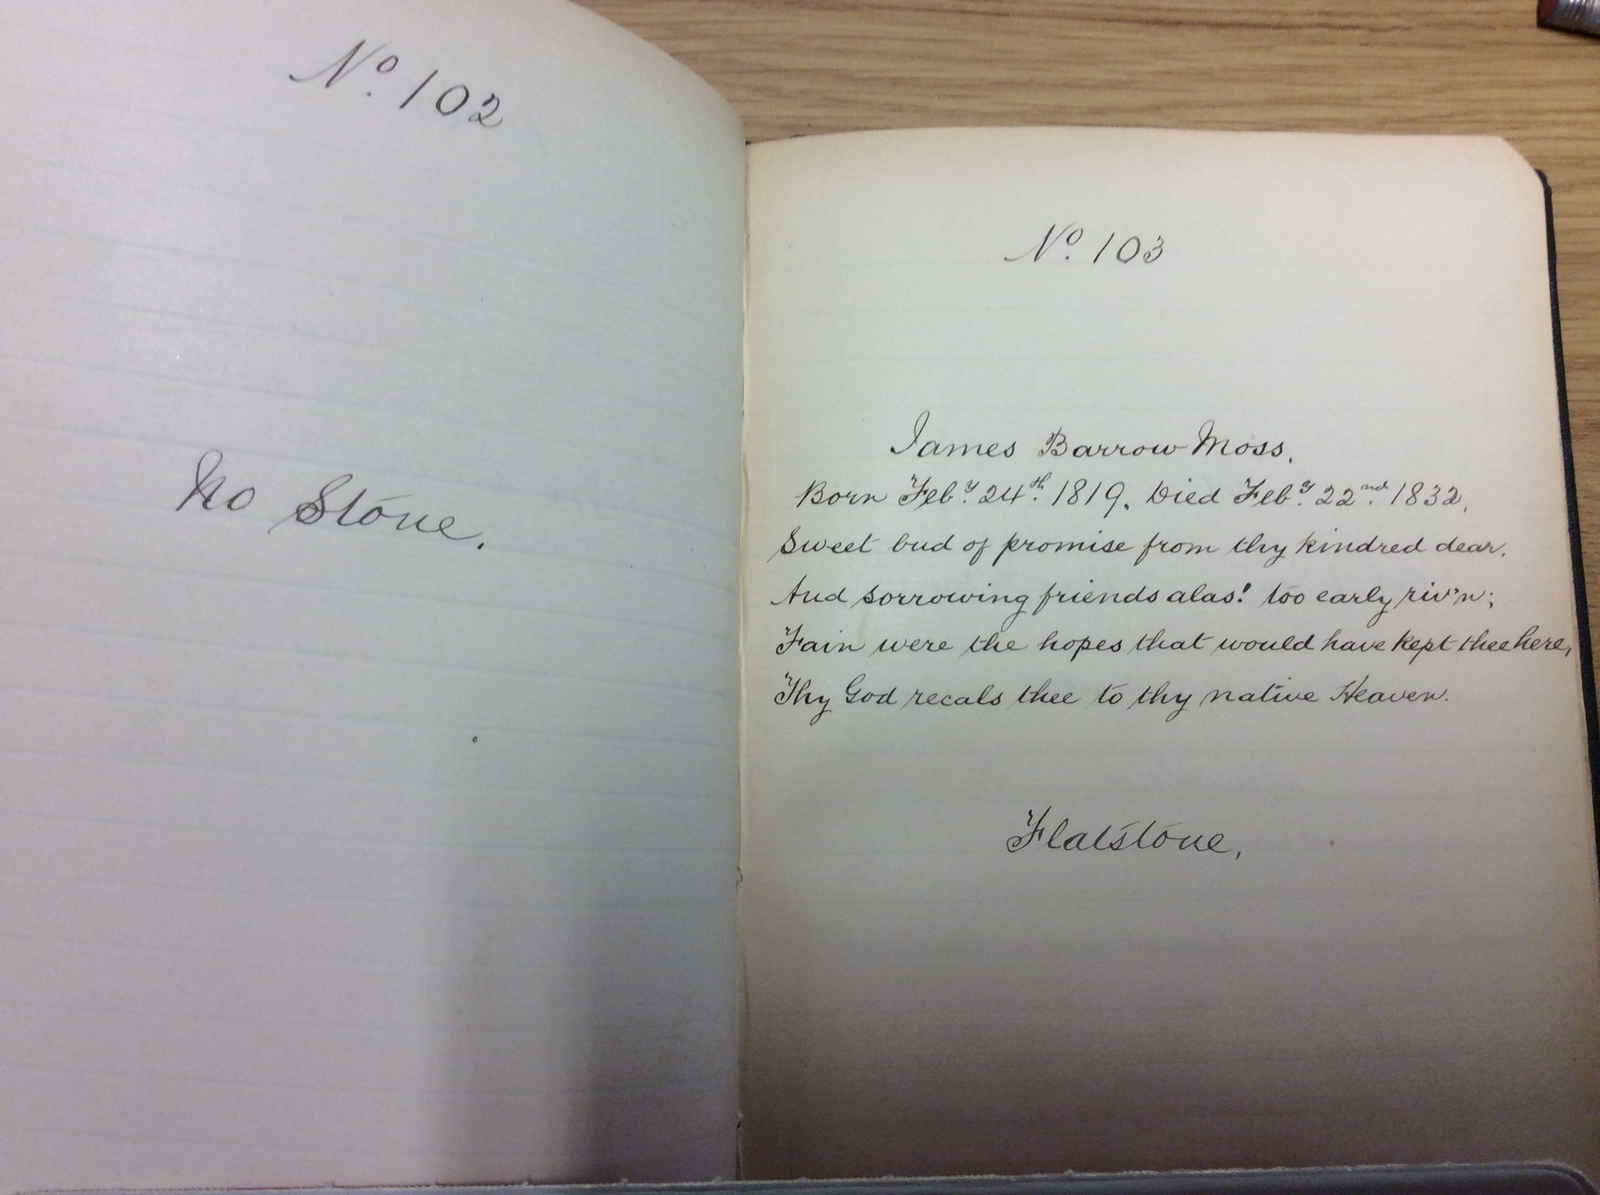 No. 102
No Stone.
No. 103
James Barrow Moss.
Born Feby. 24th. 1819. Died Feby. 22nd. 1832.
Sweet bud of promise from thy kindred dear.
And sorrowing friends alas! too early riv'n;
Fain were the hopes that would have kept thee here,
Thy God recals thee to thy native Heaven.
Flatstone.